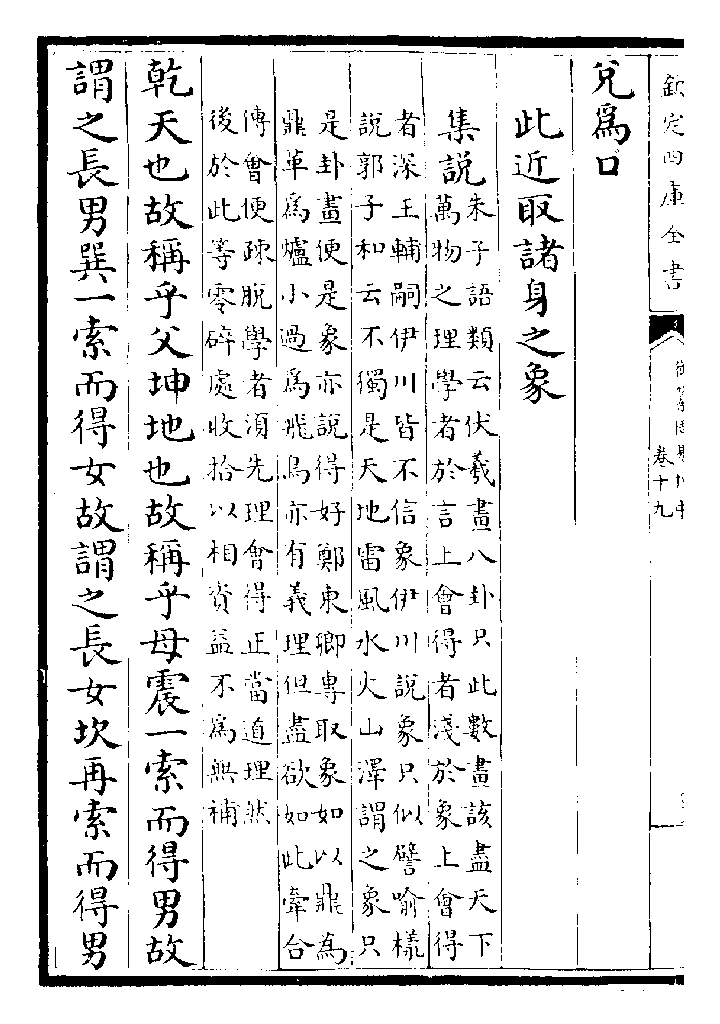 欽定四庫全書
卷十九
兊為口
此近取諸身之象
集說
朱子語類云伏羲畫八卦只此數畫該盡天下
萬物之理學者於言上會得者淺於象上會得
者深王輔嗣伊川皆不信象伊川說象只似譬喻樣
說郭子和云不獨是天地雷風水火山澤謂之象只
是卦畫便是象亦說得好鄭東卿專取象如以鼎為
鼎革為爐小過為飛鳥亦有義理但盡欲如此牽合
傅會便疎脫學者須先理會得正當道理然
後於此等零碎處收拾以相資益不為無補
乾天也故稱乎父坤地也故稱乎母震一索而得男故
謂之長男巽一索而得女故謂之長女坎再索而得男